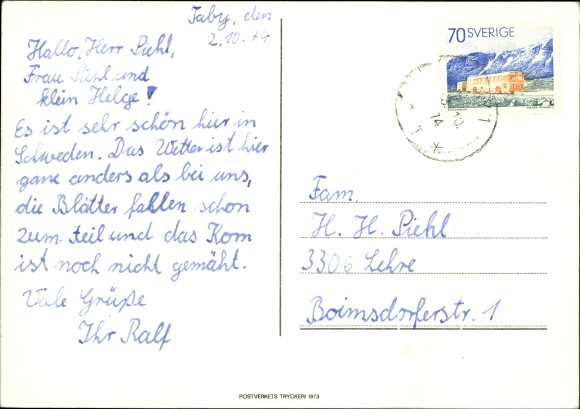 Taby, den
2.10.74
Hallo, Herr Piehl,
Frau Piehl und
klein Helge!
Es ist sehr schön hier in
Schweden. Das Wetter ist hier
ganz anders als bei uns,
die Blätter fallen schon
zum teil und das Korn
ist noch nicht gemäht.
Viele Grüße
Ihr Ralf
70 SVERIGE
Fam.
H. H. Piehl
3306 Lehre
Boimsdorferstr. 1
POSTVERKETS TRYCKERI 1973